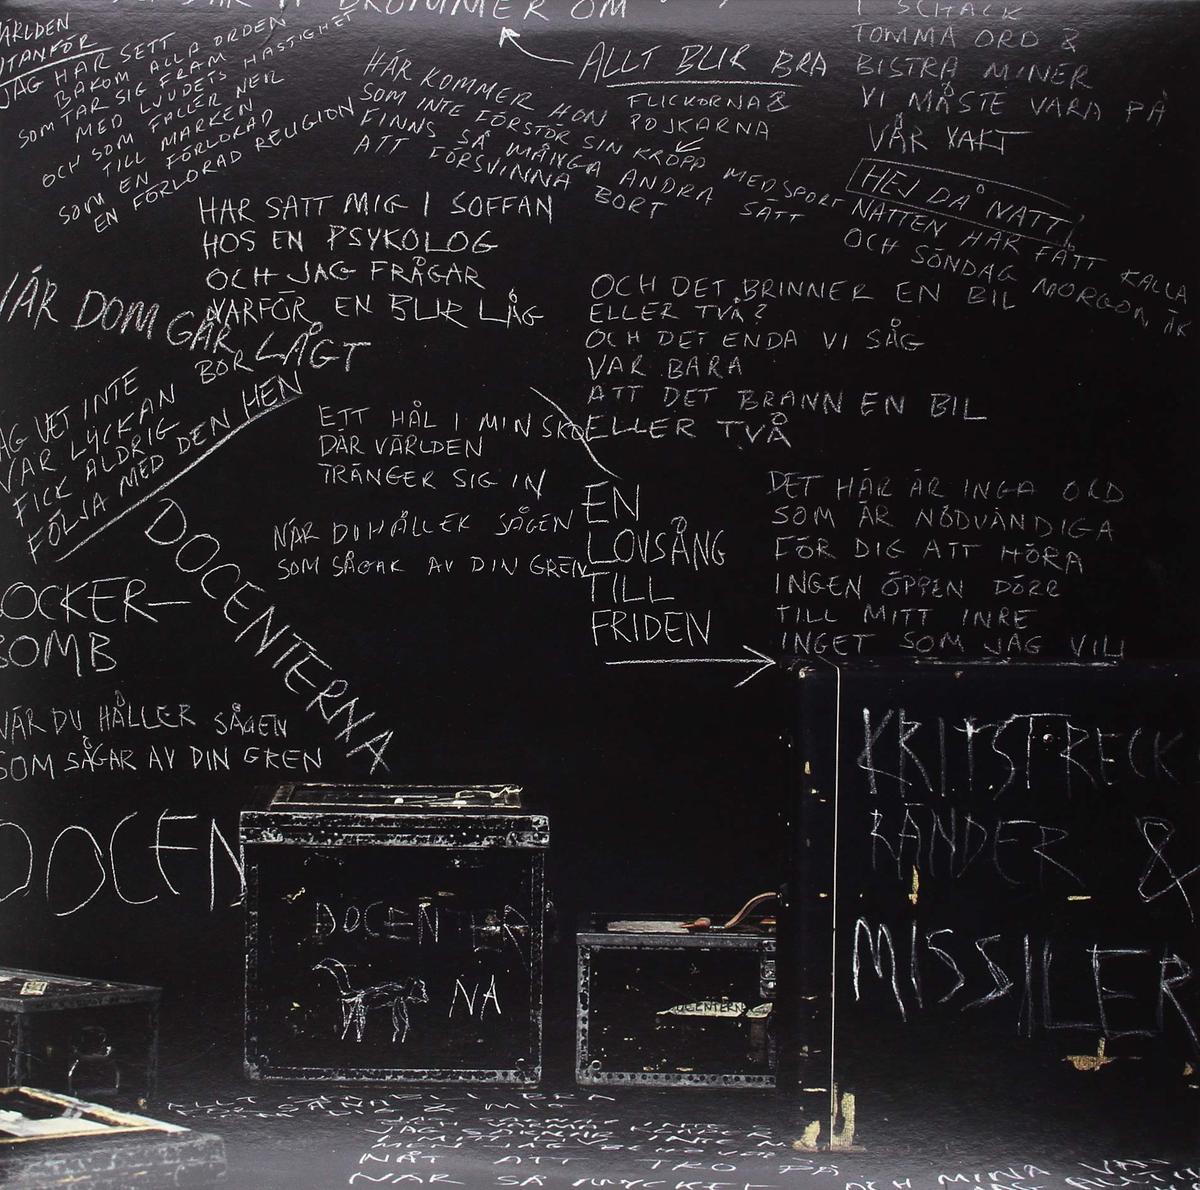 DRÖMMER OM
VÄRLDEN
UTANFÖR
JAG HAR SETT
BAKOM ALLA ORDEN
SOM TAR SIG FRAM
MED LJUDETS HASTIGHET
OCH SOM FALLER NER
TILL MARKEN
SOM EN FÖRLORAD
EN FÖRLORAD RELIGION
HÄR KOMMER HON
SOM INTE FÖRSTÖR SIN KROPP MED SPORT
FINNS SÅ MÅNGA ANDRA SÄTT
ATT FÖRSVINNA BORT
ALLT BLIR BRA
FLICKORNA &
POJKARNA
I SCHACK
TOMMA ORD &
BISTRA MINER
VI MÅSTE VARA PÅ
VÅR VAKT
HEJ DÅ NATT
NATTEN HAR FÅTT KALLA
OCH SÖNDAG MORGON ÄR
HAR SATT MIG I SOFFAN
HOS EN PSYKOLOG
OCH JAG FRÅGAR
VARFÖR EN BLIR LÅG
NÄR DOM GÅR LÅGT
JAG VET INTE
VAR LYCKAN BOR
FICK ALDRIG
FÖLJA MED DEN HEM
OCH DET BRINNER EN BIL
ELLER TVÅ?
OCH DET ENDA VI SÅG
VAR BARA
ATT DET BRANN EN BIL
ELLER TVÅ
ETT HÅL I MIN SKO
DÄR VÄRLDEN
TRÄNGER SIG IN
NÄR DU HÅLLER SÅGEN
SOM SÅGAR AV DIN GREN
EN
LOVSÅNG
TILL
FRIDEN
DET HÄR ÄR INGA ORD
SOM ÄR NÖDVÄNDIGA
FÖR DIG ATT HÖRA
INGEN ÖPPEN DÖRR
TILL MITT INRE
INGET SOM JAG VILL
DOCENTERNA
SOCKER-
BOMB
NÄR DU HÅLLER SÅGEN
SOM SÅGAR AV DIN GREN
DOCEN
DOCENTER
NA
DOCENTERNA
KRITSTRECK
RÄNDER &
MISSILER
NÅT ATT TRO PÅ
NÄR SÅ MYCKET
OCH MINA